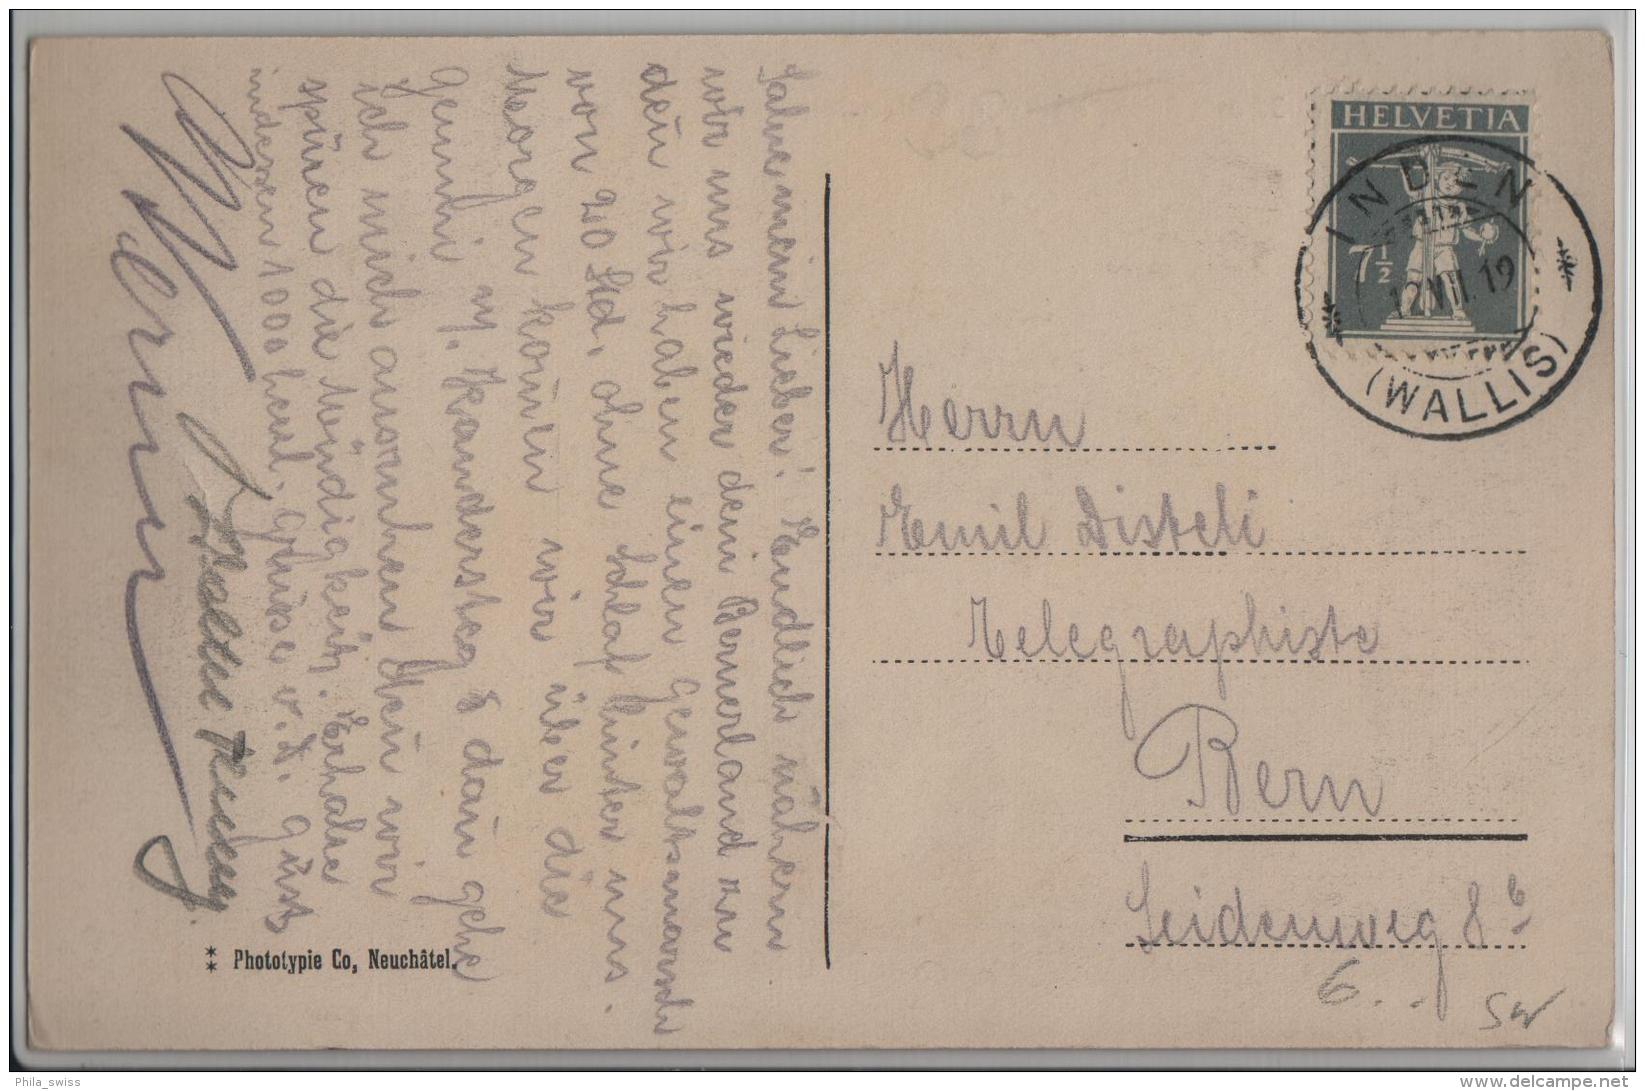 Salve mein Lieber! Endlich nähern
wir uns wieder dem Bernerland zu
den wir haben einen Gewaltsmarsch
von 20 Std. ohne Schlaf hinter uns.
Morgen kom̄en wir über die
Gemmi n. Kandersteg & dan̄ gehe
ich mich ausruhen den̄ wir
spüren die Müdigkeit. Erhalte
indessen 1000 herzl. Grüsse v. d. Gust
Werner
Phototypie Co, Neuchâtel.
HELVETIA
7½
INDEN
12.VII.19
(WALLIS)
Herrn
Emil Disteli
Telegraphiste
Bern
Seidenweg 8b
6..
SW
Phila_swiss
delcampe.net